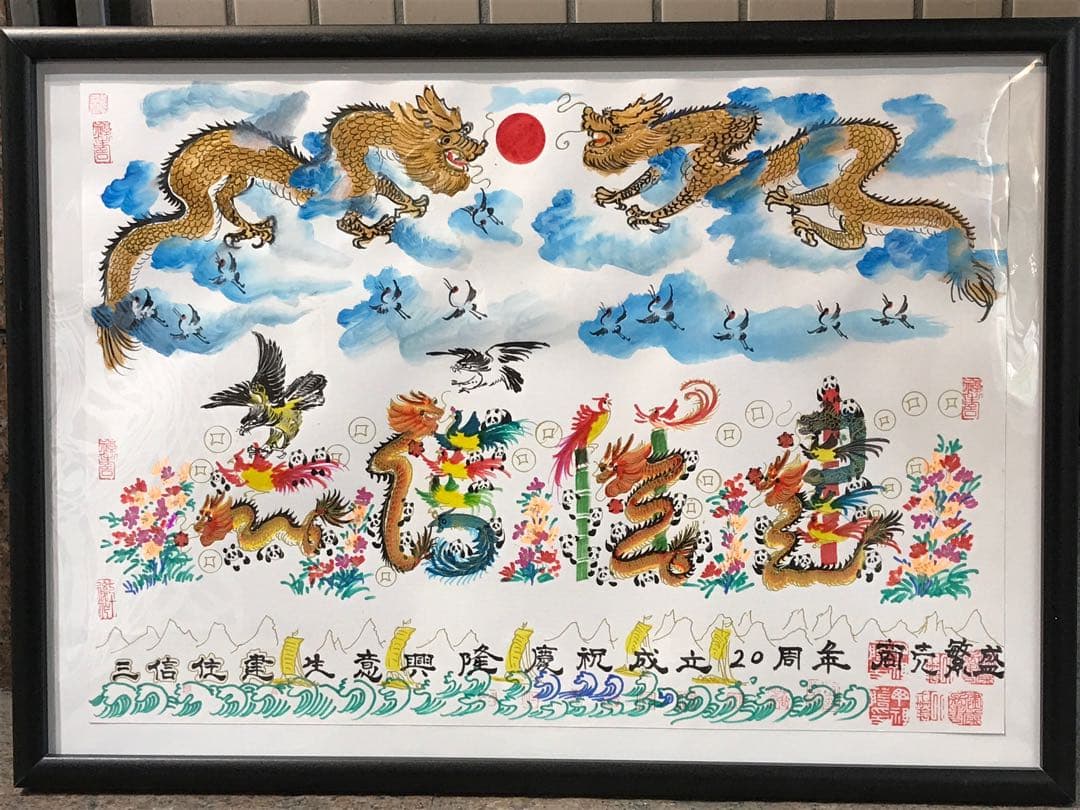 三信住建
三信住建 生意興隆 慶祝成立20周年 商売繁盛